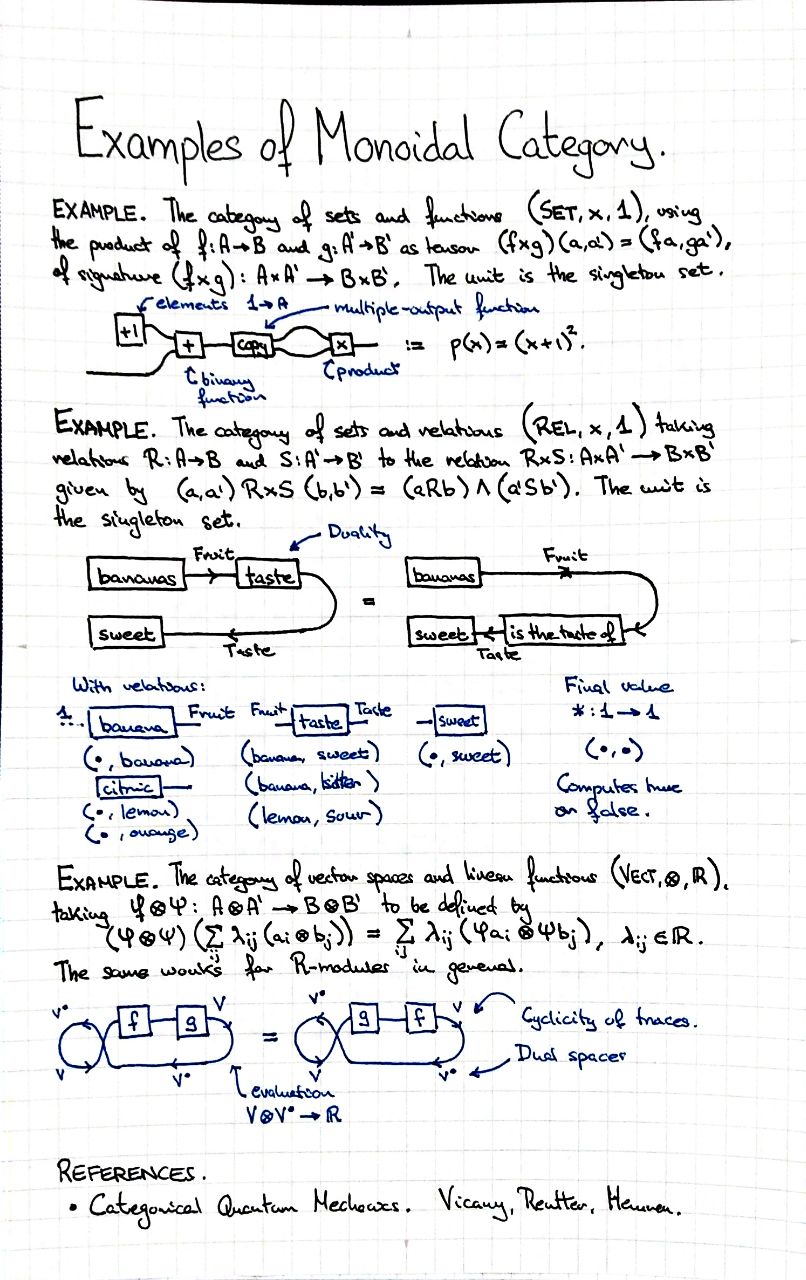 Examples of Monoidal Category.
EXAMPLE. The category of sets and functions (SET, ×, 1), using
the product of f: A→B and g: A'→B' as tensor (f×g)(a,a') = (fa,ga'),
of signature (f×g): A×A' → B×B'. The unit is the singleton set.
elements 1→A multiple-output function
+1
+ copy × := p(x) = (x+1)².
binary function product
EXAMPLE. The category of sets and relations (REL, ×, 1) taking
relations R: A→B and S: A'→B' to the relation R×S: A×A' → B×B'
given by (a,a') R×S (b,b') = (aRb) ∧ (a'Sb'). The unit is
the singleton set.
Duality
Fruit Fruit
bananas taste = bananas
sweet sweet is the taste of
Taste Taste
With relations: Final value
1 banana Fruit Fruit taste Taste sweet *: 1 → 1
(•, banana) (banana, sweet) (•, sweet) (•,•)
citric (banana, bitter) Computes true
(•, lemon) (lemon, sour) or false.
(•, orange)
EXAMPLE. The category of vector spaces and linear functions (VECT, ⊗, ℝ),
taking φ⊗ψ: A⊗A' → B⊗B' to be defined by
(φ⊗ψ)(∑ij λij (ai⊗bj)) = ∑ij λij (φai ⊗ ψbj), λij ∈ ℝ.
The same works for R-modules in general.
V* f g V = V* g f V Cyclicity of traces.
V V* V V* Dual spaces
evaluation
V⊗V* → ℝ
REFERENCES.
• Categorical Quantum Mechanics. Vicary, Reutter, Heunen.